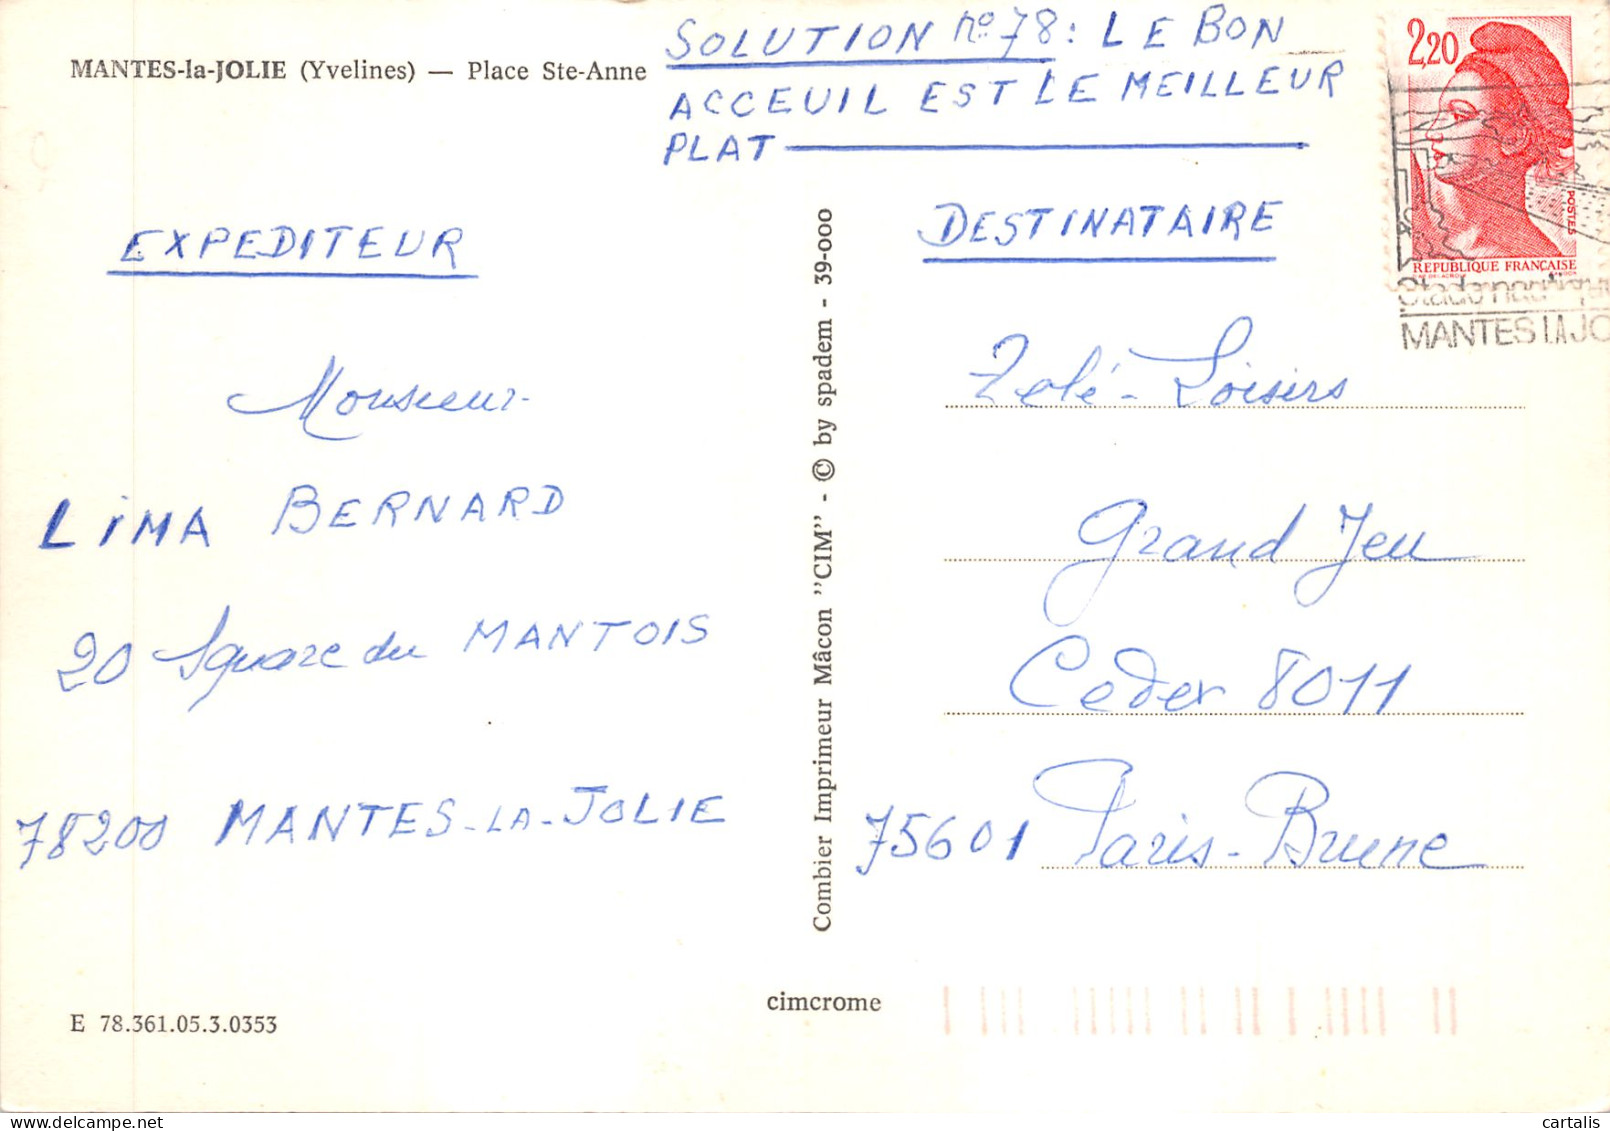 MANTES-la-JOLIE (Yvelines) — Place Ste-Anne
SOLUTION n° 78 : LE BON
ACCEUIL EST LE MEILLEUR
PLAT
2,20
POSTES
REPUBLIQUE FRANÇAISE
MANTES LA JO
EXPEDITEUR
Monsieur
LIMA BERNARD
20 Square du MANTOIS
78200 MANTES-LA-JOLIE
E 78.361.05.3.0353
Combier Imprimeur Mâcon "CIM" - © by spadem - 39-000
cimcrome
DESTINATAIRE
Télé-Loisirs
Grand Jeu
Cedex 8011
75601 Paris-Brune
cartalis